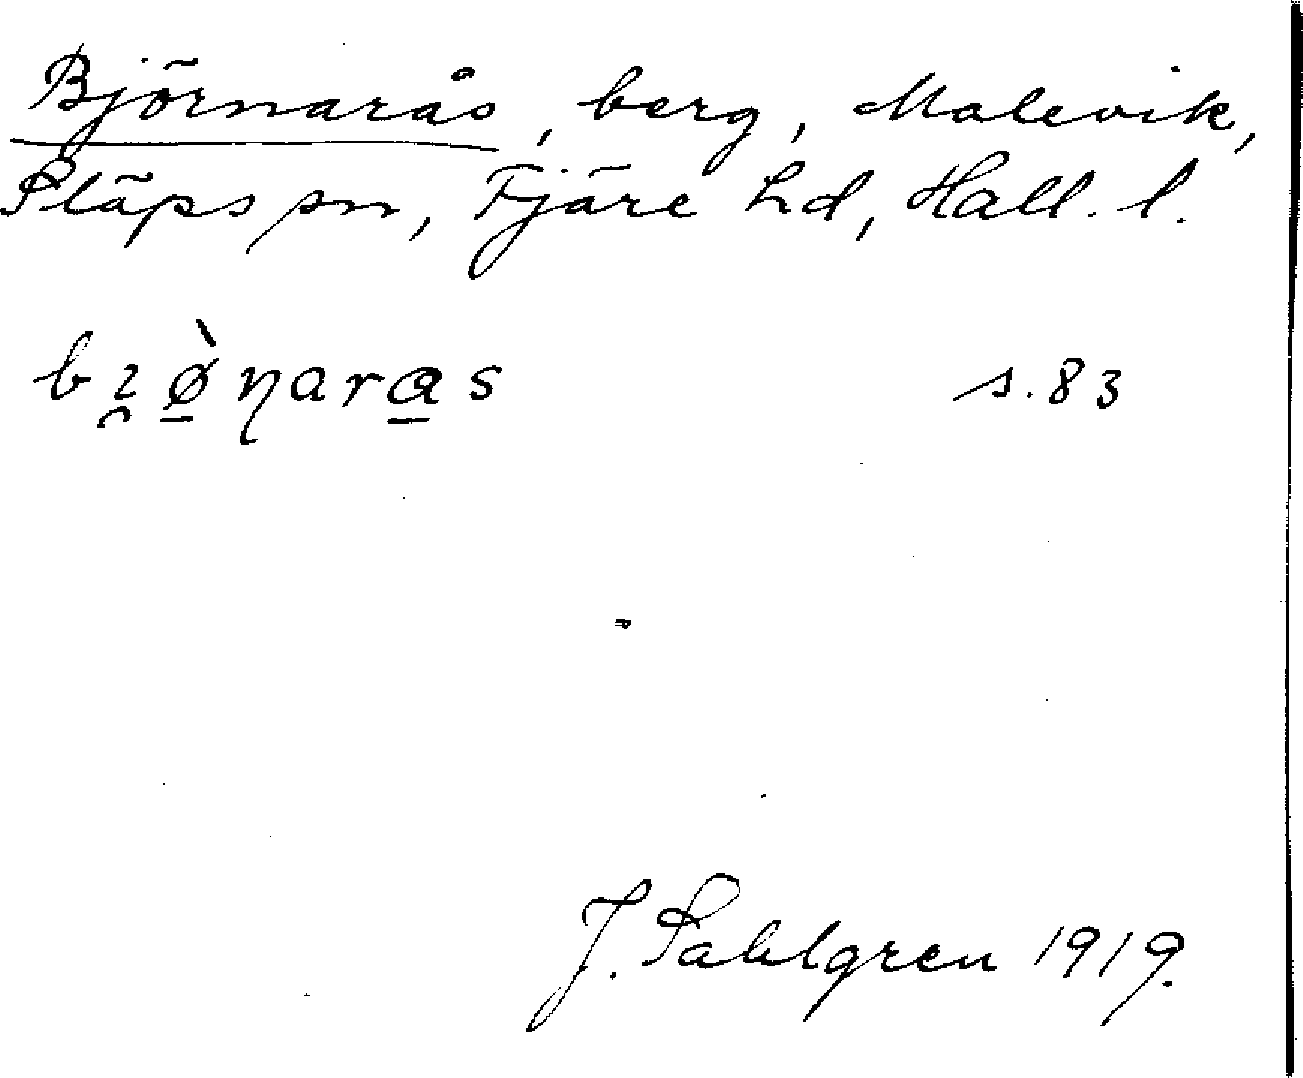 Björnarås, berg, Malevik,
Släps sn, Fjäre hd, Hall. l.
bı̯ø̠̀ɳara̠s s. 83
J. Sahlgren 1919.